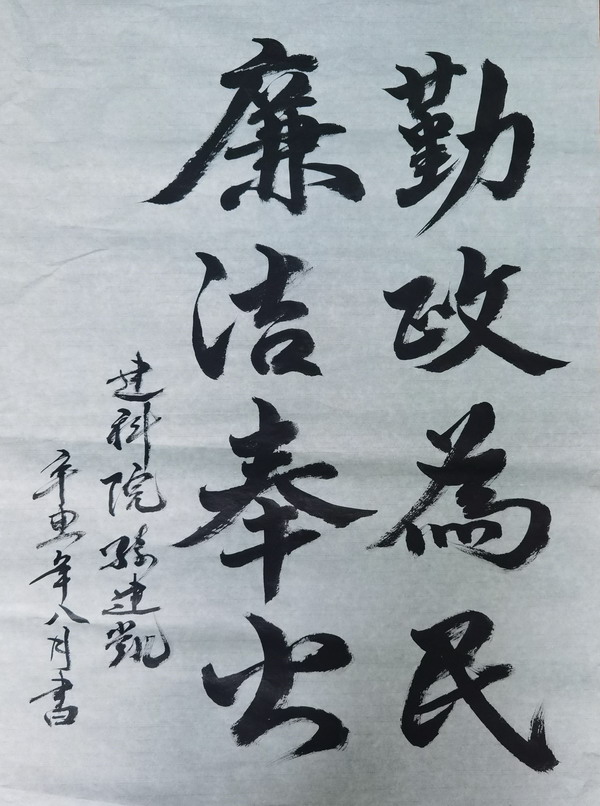 勤政為民
廉洁奉公
建科院孙建凯
辛丑年八月書